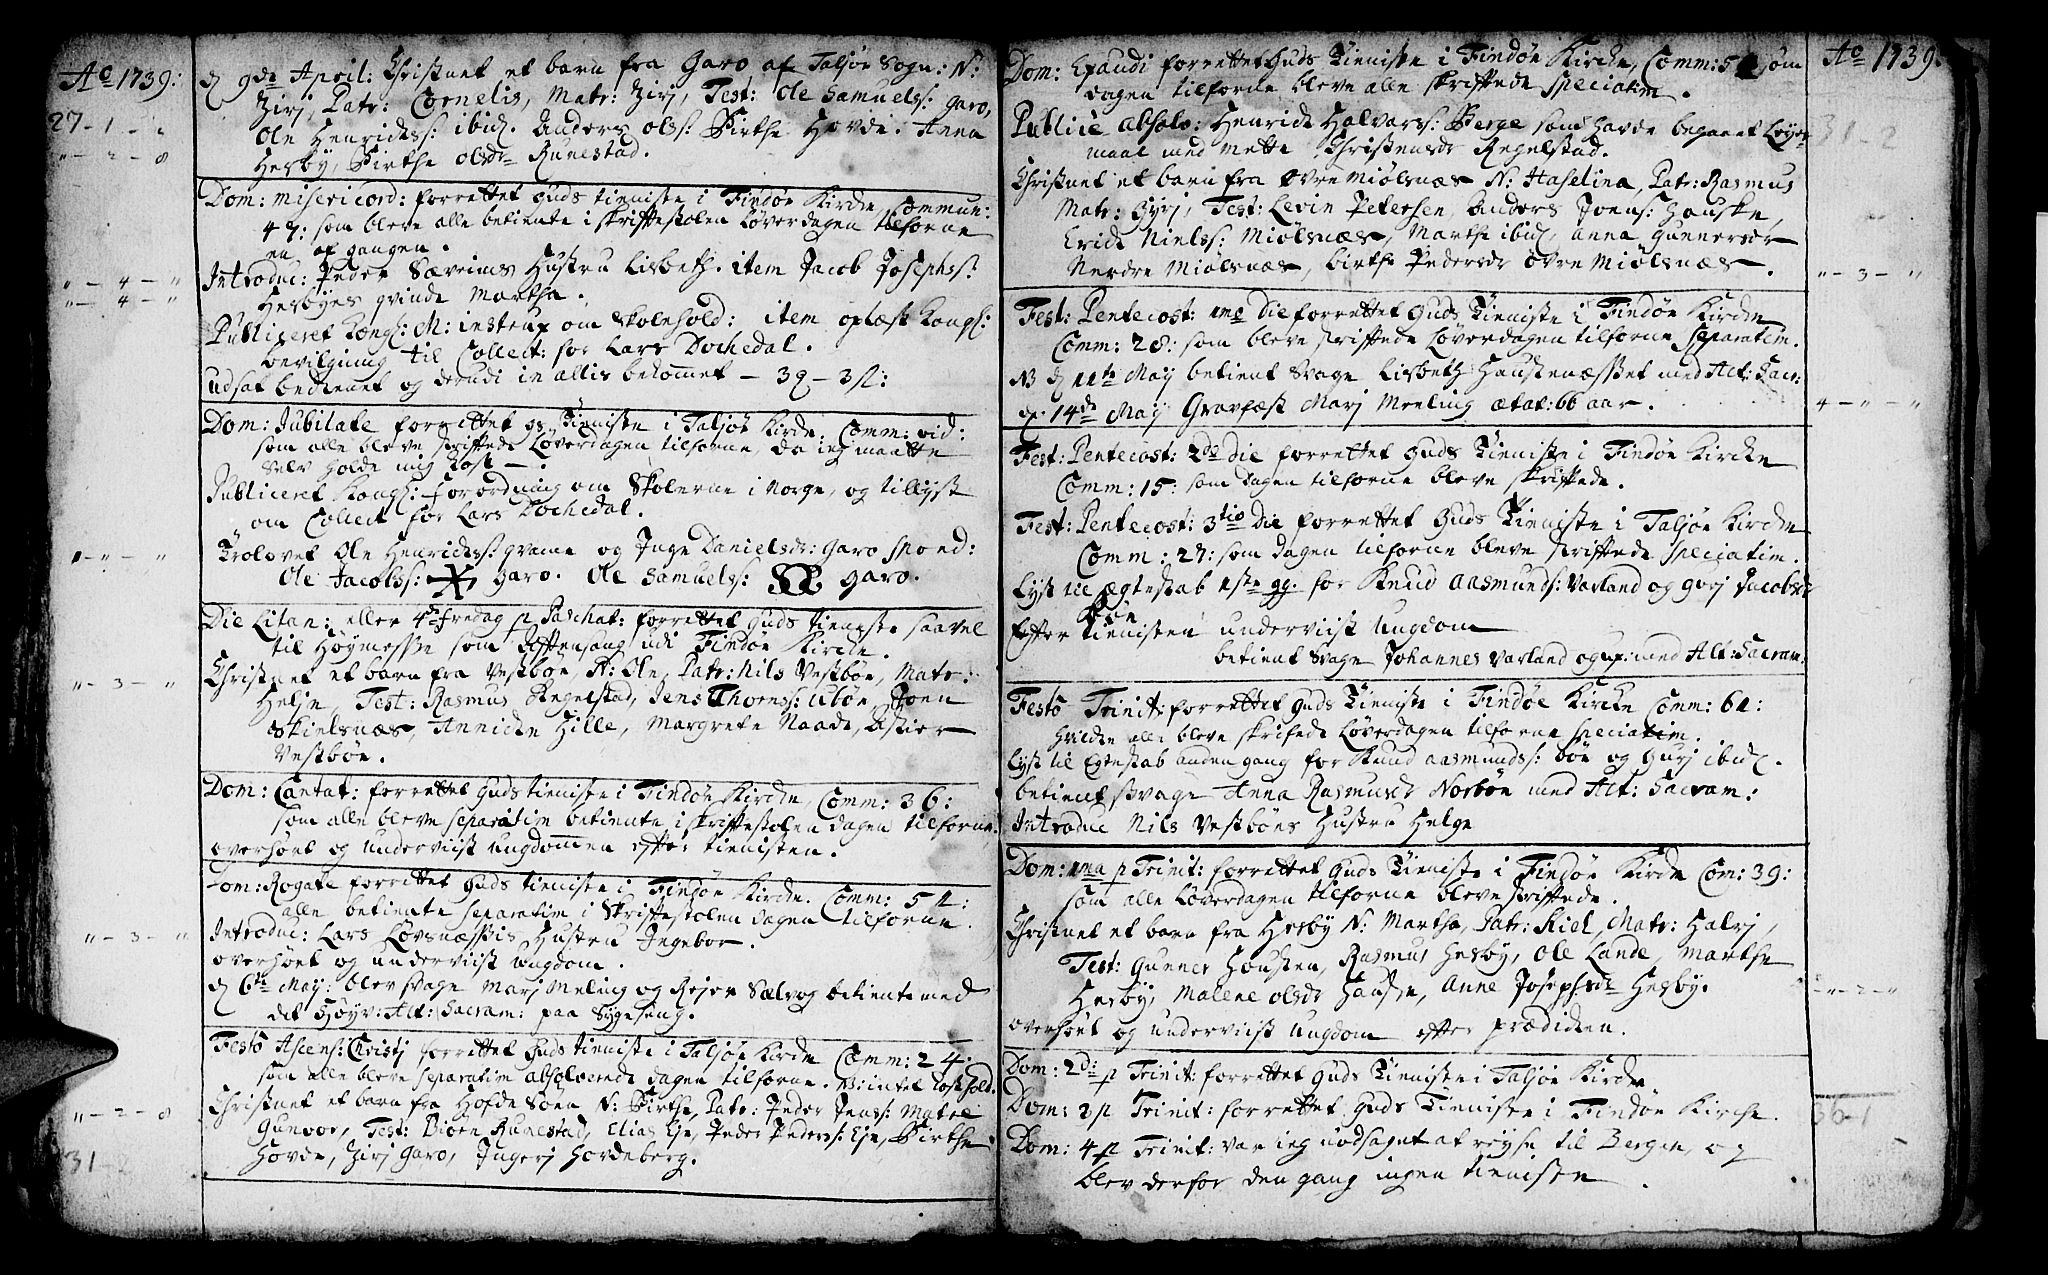 Ao 1739:
27 - 1 -
" - 2 - 8
d 9de April: Christnet et barn fra Garo af Taljøe Sogn: N:
Zirj, Patr: Cornelis, Matr: Zirj, Test: Ole Samuels: Garo,
Ole Henrichs: ibid. Anders ols: Birthe Hovde. Anna
Hesbÿ, Birthe olsdr Runestad.
Dom: Misericord: forrettet Guds tieniste i Findøe Kirche, Commun:
47: som bleve alle betiente i skriftestolen Løverdagen tilforne
en af gangen.
" - 4 - "
Introduc: Peder Særeims Hustru Lisbeth. item Jacob Josephs:
" - 4 - "
Hesbÿes qvinde Martha.
Publiceret Kongl: M: instrux om Skolehold: item oplæst Kongl:
bevilgning til Collect: for Lars Dochedal.
udsat beckenet og derudi in allis bekommet - 39 - 3 sl:
Dom: Jubilate forrettet gs Tieniste i Taljøe Kirche. Comm: vid:
som alle bleve skriftede Løverdagen tilforne, da ieg maatte
selv holde mig Kost - .
Publiceret Kongl: forordning om Skolerne i Norge, og tillyst
om Collect for Lars Dochedal.
1 - " - "
Trolovet Ole Henrichs: qvame og Inge Danielsdr: Garo spond:
Ole Jacobs: Garo. Ole Samuels: Garo.
Die Litan: eller 4de fredag p Paschat: forrettet Guds tieniste saavel
til Høymesse som Aftensang udi Findøe Kirche.
Christnet et barn fra Vestbøe, N: Ole, Patr: Nils Vestbøe, Matr:
" - 3 - "
Helje, Test: Rasmus Regelstad, Jens Thorns: Ubøe, Joen
Skielsnæs, Annicke Hille, Margrete Naade, Astier
Vestbøe.
Dom: Cantat: forrettet Guds tieniste i Findøe Kirche, Comm: 36:
som alle bleve separatim betiente i skriftestolen dagen tilforne.
overhørt og underviist ungdommen efter tienisten.
Dom: Rogate forrettet Guds tieniste i Findøe Kirche. Comm: 54:
alle betiente separatim i Skriftestolen dagen tilforne.
" - 3 - "
Introduc: Lars Løvsnæssis Hustru Ingebor.
overhørt og underviist ungdom.
d 6te May: blev svage Marj Meling og Rejer Sælvog betiente med
det Høyv: Alt: Sacram: paa Sygeseng.
Festo Ascens: Christj forrettet Guds tieniste i Taljøe Kirche Comm: 24:
som alle bleve separatim absolverede dagen tilforne. NB: intet Kosthold.
" - 2 - 8
Christnet et barn fra Hofde Søen N: Birthe, Patr: Peder Jens: Matre
Gunvor, Test: Biørn Runestad, Elias Eje, Peder Peders: Eje, Birthe
Hovde, Zirj Garo, Ingerj Hovdeberg.
31 - 2
Ao 1739:
Dom: Exaudi forrettet Guds Tieniste i Findøe Kirche, Comm: 54 som
dagen tilforne bleve alle skriftede speciatim.
31 - 2
Publicè absolv: Henrich Halvars: Berge som havde begaaet Leyer-
maal med Mette Christensdr Regelstad.
Christnet et barn fra Øvre Miølsnæs N: Haselina, Patr: Rasmus
Matr: Gyrj, Test: Levin Petersen, Anders Joens: Hauske,
Erich Niels: Miølsnæs, Marthe ibid, Anna Gunnersdr
" - 3 - "
Nerdre Miølsnæs, birthe Pedersdr øvre Miølsnæs.
Fest: Pentecost: 1me Die forrettet Guds Tieniste i Findøe Kirche
Comm: 28: som bleve skriftede Løverdagen tilforne separatim.
NB d 11te May betient svage Lisbeth Haustenæsset med Alt: Sacr:
4 - " - "
d. 14de May Gravfæst Marj Meeling ætat: 66 aar.
Fest: Pentecost: 2de die forrettet Guds Tieniste i Findøe Kirche
Comm: 15: som dagen tilforne bleve skriftede.
Fest: Pentecost: 3tio Die forrettet Guds Tieniste i Taljøe Kirche
Comm: 27: som dagen tilforne bleve skriftede speciatim.
Lyst til Ægteskab 1ste gg. for Knud Aasmunds: Varland og Gurj Jacobsdr
Bøe
Efter tienisten underviist Ungdom
betient svage Johannes Varland og ux: med Alt: Sacram:
Festo Trinit: forrettet Guds Tieniste i Findøe Kirche Comm: 61:
hvilcke alle bleve skriftede Løverdagen tilforne speciatim.
Lyst til Egteskab anden gang for Knud Aasmunds: bøe og Gurj ibid.
betient svage Anna Rasmusdr Norbøe med Alt: Sacram:
Introduc Nils Vestbøes Hustru Helge
Dom: 1ma p Trinit: forrettet Guds Tieniste i Findøe Kirche Com: 39:
som alle Løverdagen tilforne bleve skriftede.
Christnet et barn fra Hesbÿ N: Martha, Patr: Kiel, Matr: Halrj,
Test: Gunner Housken, Rasmus Hesbÿ, Ole Lande, Marthe
" - 2 - "
Hesbÿ, Malene olsdr Hauske, Anne Josephsdr Hesbÿ.
overhørt og underviist ungdom efter prædicken.
Dom: 2d: p Trinit: forrettet Guds Tieniste i Taljøe Kirche.
36 - 1
Dom: 3 p Trinit: forrettet Guds Tieniste i Findøe Kirche.
Dom: 4 p Trinit: var ieg nødsaget at reyse til Bergen, og
blev derfor den gang ingen tieniste.